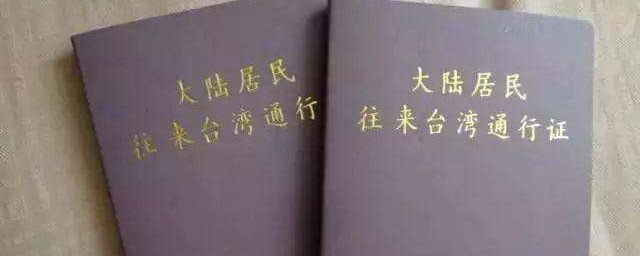 大陆居民
往来台湾通行
大陆居民
往来台湾通行证